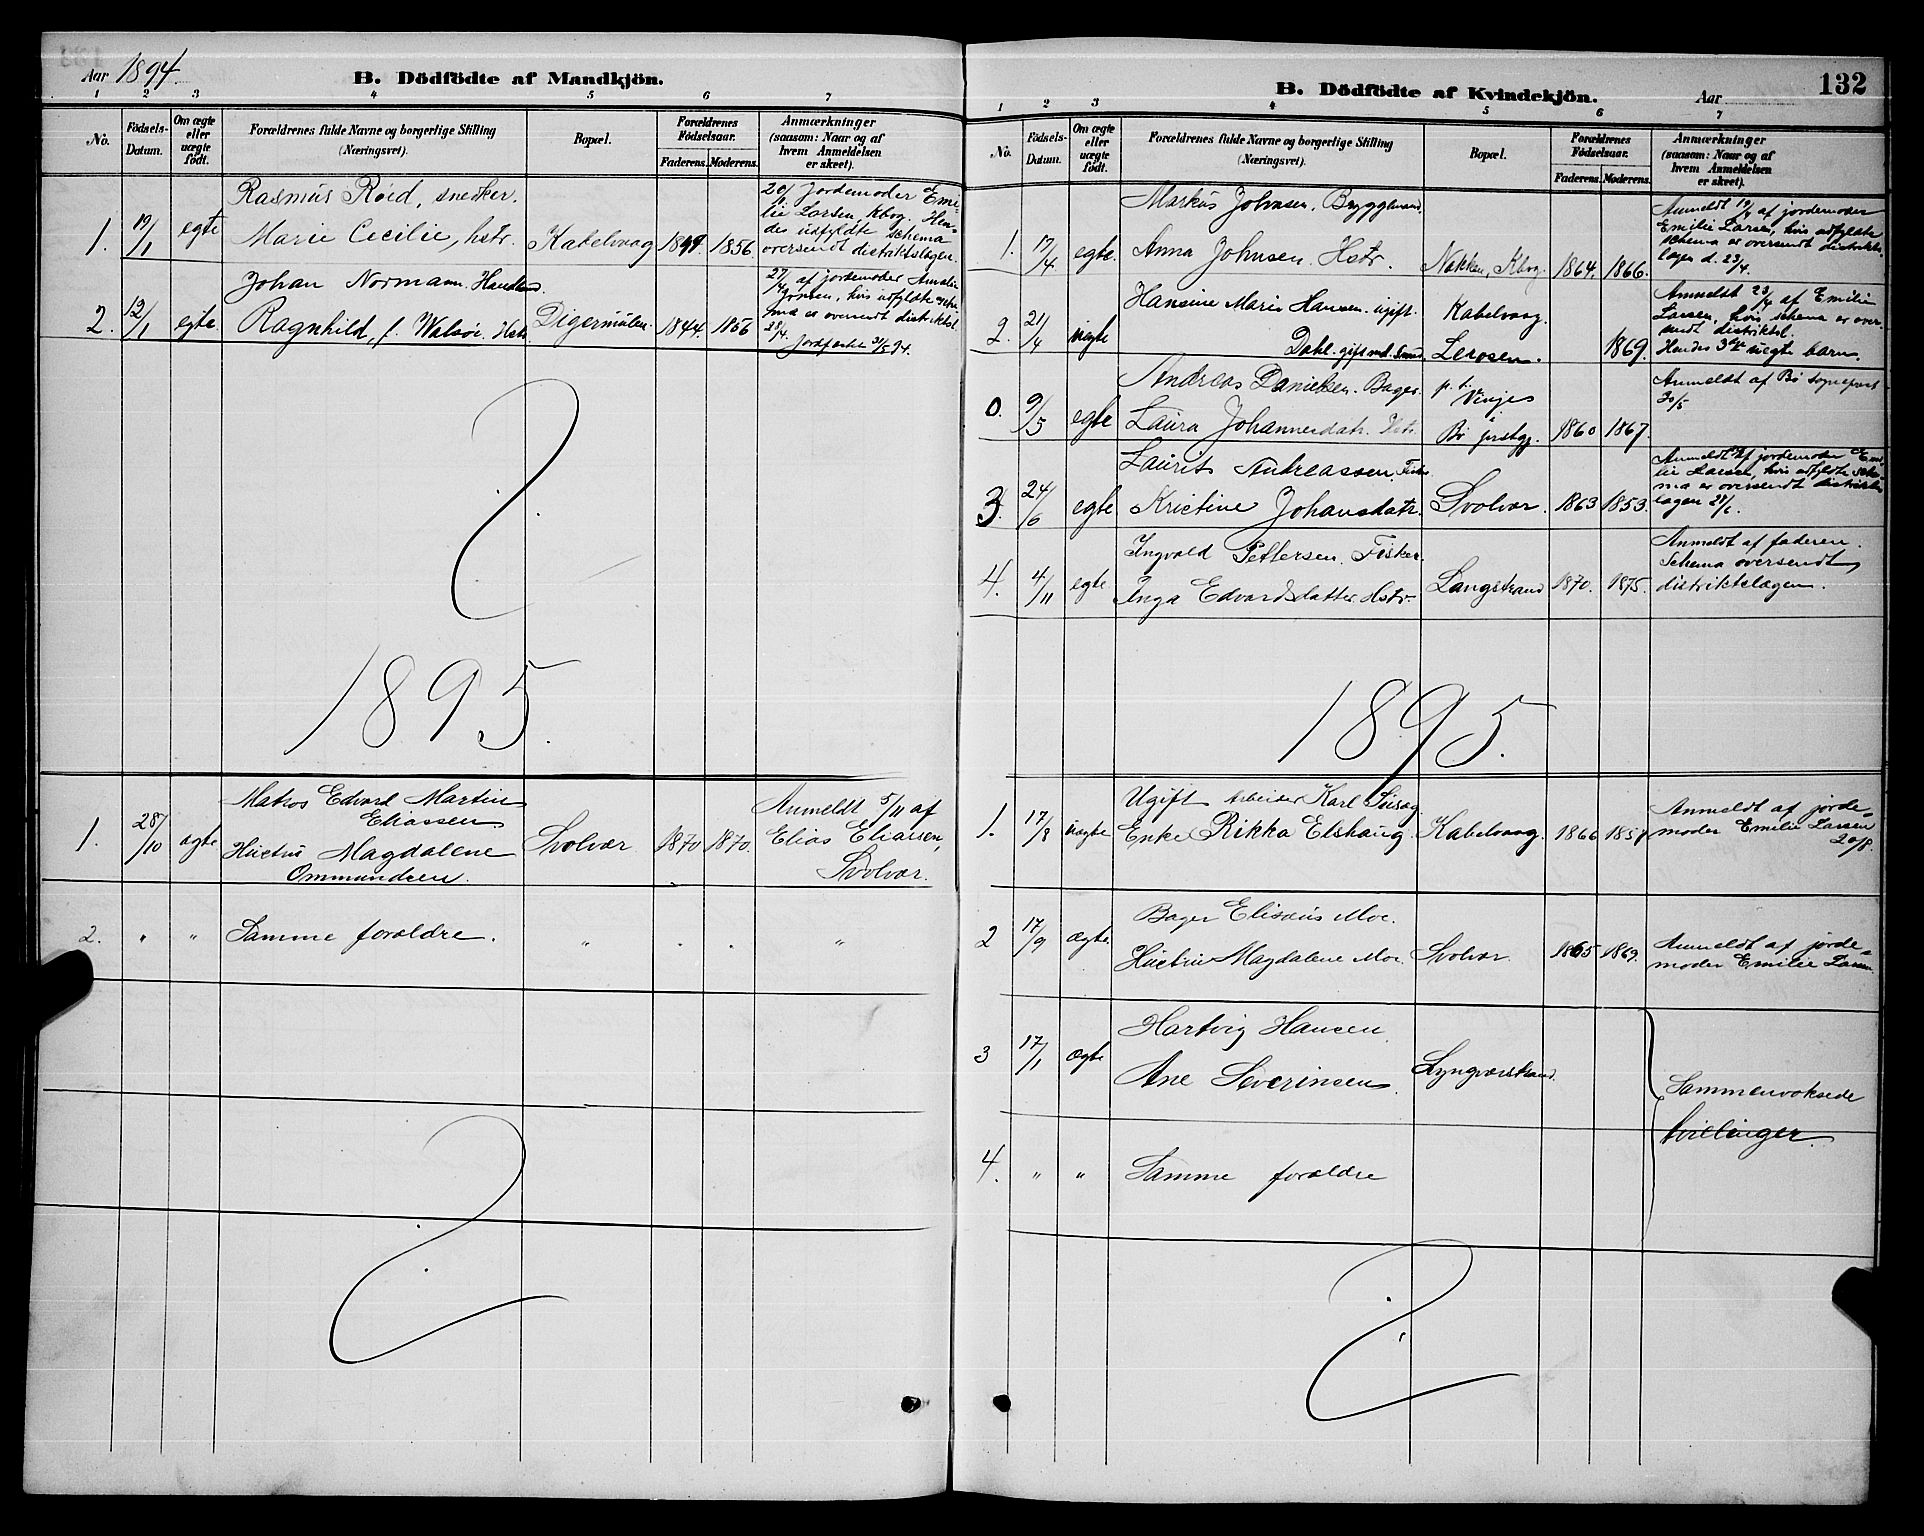 Aar 1894.
B. Dödfödte af Mandkjön.
1 2 3 4 5 6 7
No.
Födsels-
Datum.
Om ægte
eller
uægte
födt.
Forældrenes fulde Navne og borgerlige Stilling
(Næringsvei).
Bopæl.
Forældrenes
Födselsaar.
Faderens. Moderens.
Anmærkninger
(saasom: Naar og af
hvem Anmeldelsen
er skeet).
1. 19/1 egte
Rasmus Roied, snedker.
Marie Cecilie, hstr. Kabelvaag 1856.
20/1 Jordemoder Emi-
lie Larsen, Kbvg. Hen-
des udfyldte schema
oversendt distriktslægen.
2. 12/1 egte
Johan Normann.
Ragnhild, f. Walsöe. Hstr. Digermulen. 1844. 1856
27/4 af jordemoder Amalie
Jensen, hvis udfyldte sche-
ma er oversendt distriktsl.
28/4. Jordfæstet 31/5 94.
1895.
1. 28/10 ægte
Matros Edvard Martin
Eliassen
Hustru Magdalene
Ommundsen.
Svolvær 1870 1870.
Anmeldt 5/11 af
Elias Eliassen,
Svolvær.
2. " " Samme forældre. " " " "
132
B. Dödfödte af Kvindekjön.
Aar
1 2 3 4 5 6 7
No.
Födsels-
Datum.
Om ægte
eller
uægte
födt.
Forældrenes fulde Navne og borgerlige Stilling
(Næringsvei).
Bopæl.
Forældrenes
Födselsaar.
Faderens. Moderens.
Anmærkninger
(saasom: Naar og af
hvem Anmeldelsen
er skeet).
1. 17/4 egte.
Markus Johnsen. Bryggemand.
Anna Johnsen. Hstr. Nakken, Kbvg. 1864. 1866.
Anmeldt 19/4 af jordemoder
Emilie Larsen, hvis udfyldte
schema er oversendt distrikts-
lægen d. 23/4.
2. 21/4 uegte
Hansine Marie Hansen. ugift. Kabelvaag.
Dahl. gift md. Lerosen. 1869.
Anmeldt 23/4 af Emilie
Larsen, hvis schema er over-
sendt distriktsl.
Hendes 3die uegte barn.
0. 9/5 egte
Andreas Danielsen. Bager. p. t. Vinjes
Laura Johannesdatr. Hstr. Bö prstgj. 1860 1867.
Anmeldt af Bö sognepræst
30/5
3. 24/6 egte
Laurits Andreassen. Fisker
Kristine Johansdatr. Svolvær. 1863 1853.
Anmeldt af jordemoder Emi-
lie Larsen, hvis udfyldte sche-
ma er oversendt distrikts-
lægen 28/6.
4. 4/11 egte
Ingvald Pettersen. Fisker.
Inga Edvardsdatter. Hstr. Langstrand 1870. 1875.
Anmeldt af faderen.
Schema oversendt
distriktslægen.
1895.
1. 17/8 uægte
Ugift Arbeider Karl
Enke Rikka Elshaug. Kabelvaag. 1866
Anmeldt af jorde-
moder Emilie Larsen
20/8.
2 17/9 ægte.
Bager Elisæus Moe.
Hustru Magdalene Moe. Svolvær. 1865 1869.
Anmeldt af jorde-
moder Emilie Larsen
3 17/1 ægte
Hartvig Hansen
Ane Severinsen. Lyngværstrand.
Sammenvoksede
tvillinger.
4. " " Samme forældre